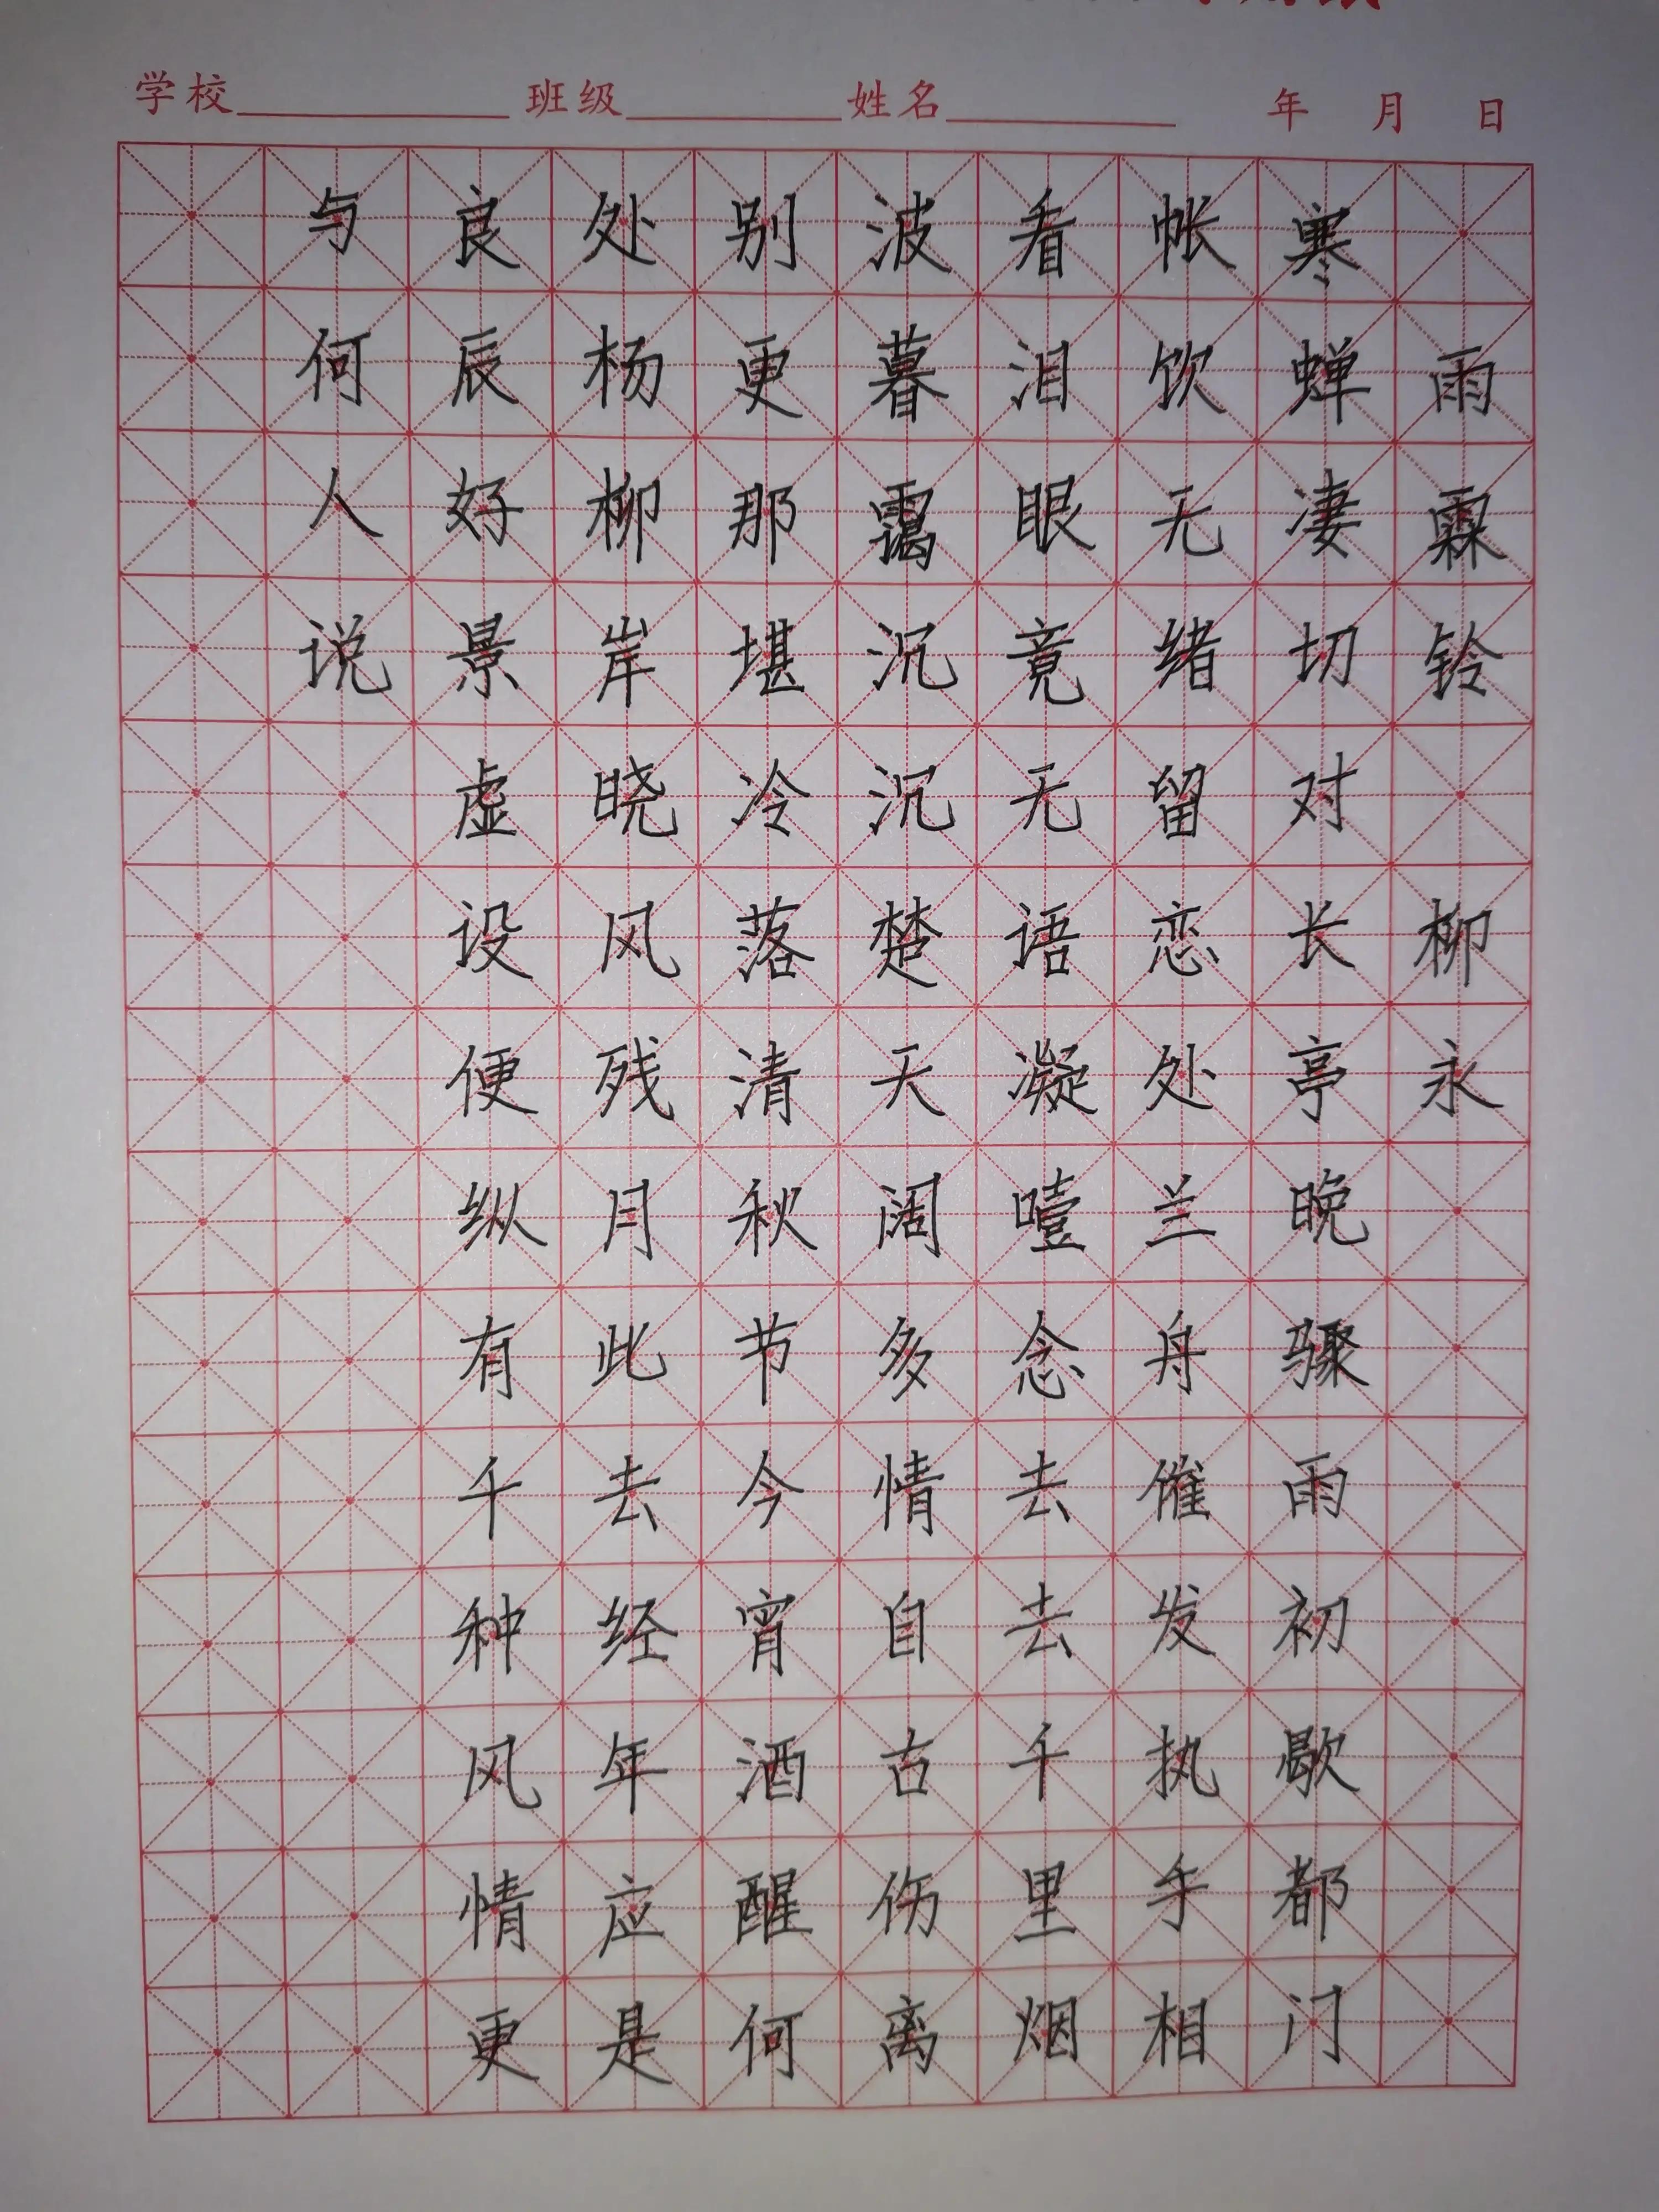 学校 班级 姓名 年 月 日
雨霖铃 柳永
寒蝉凄切对长亭晚骤雨初歇都门
帐饮无绪留恋处兰舟催发执手相
看泪眼竟无语凝噎念去去千里烟
波暮霭沉沉楚天阔多情自古伤离
别更那堪冷落清秋节今宵酒醒何
处杨柳岸晓风残月此去经年应是
良辰好景虚设便纵有千种风情更
与何人说